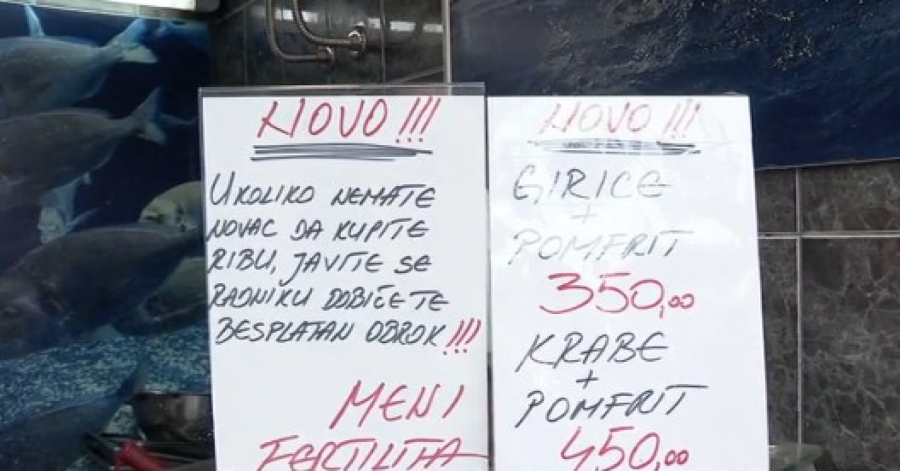 NOVO!!!
UKOLIKO NEMATE
NOVAC DA KUPITE
RIBU, JAVITE SE
RADNIKU DOBIĆETE
BESPLATAN OBROK!!!
MENI
NOVO!!!
GIRICE
+
POMFRIT
350,00
KRABE
+
POMFRIT
450,00